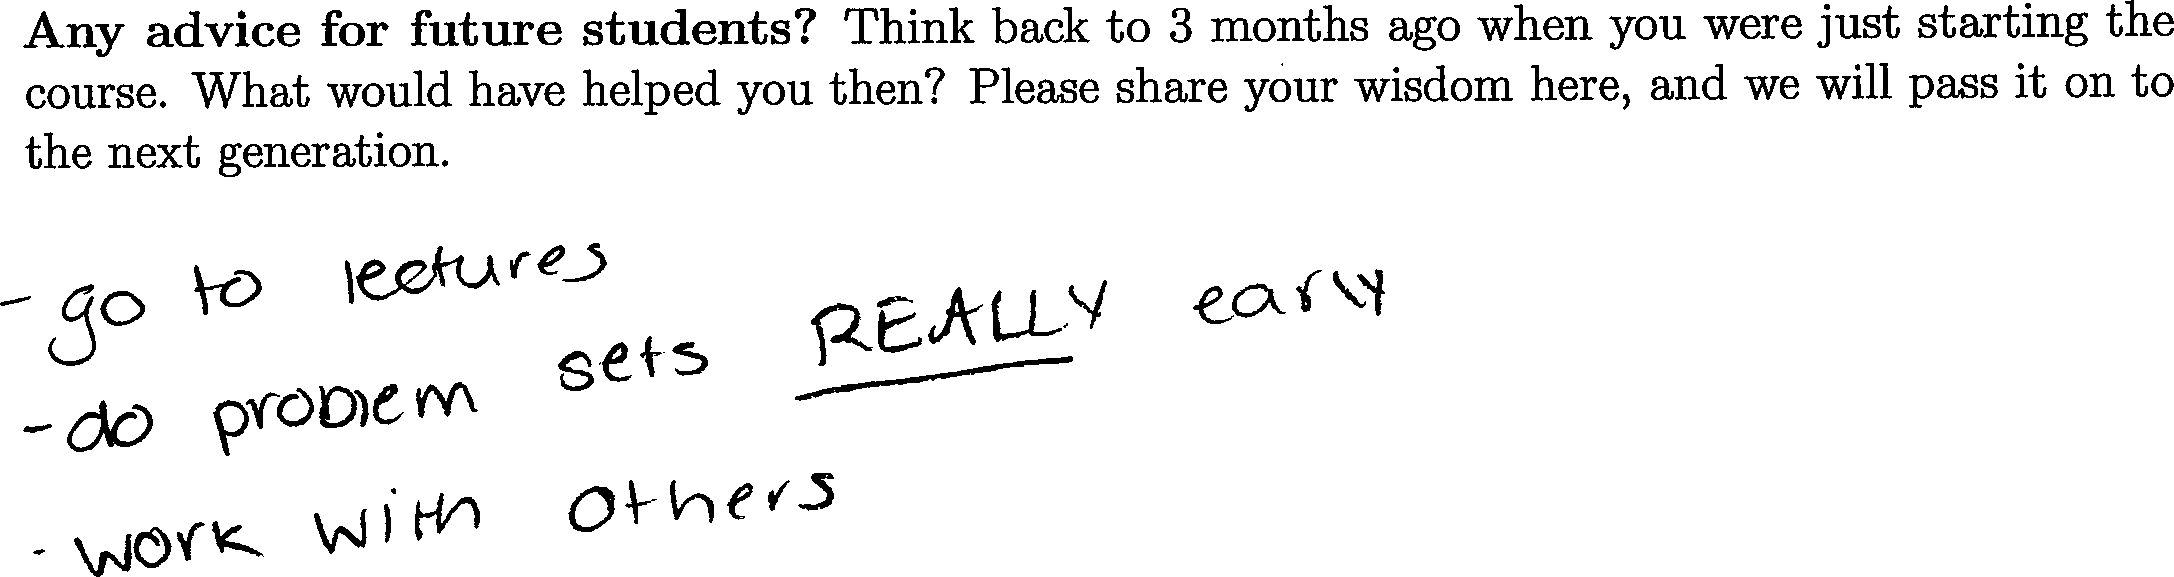 Any advice for future students? Think back to 3 months ago when you were just starting the
course. What would have helped you then? Please share your wisdom here, and we will pass it on to
the next generation.
- go to lectures
- do problem sets REALLY early
- work with others